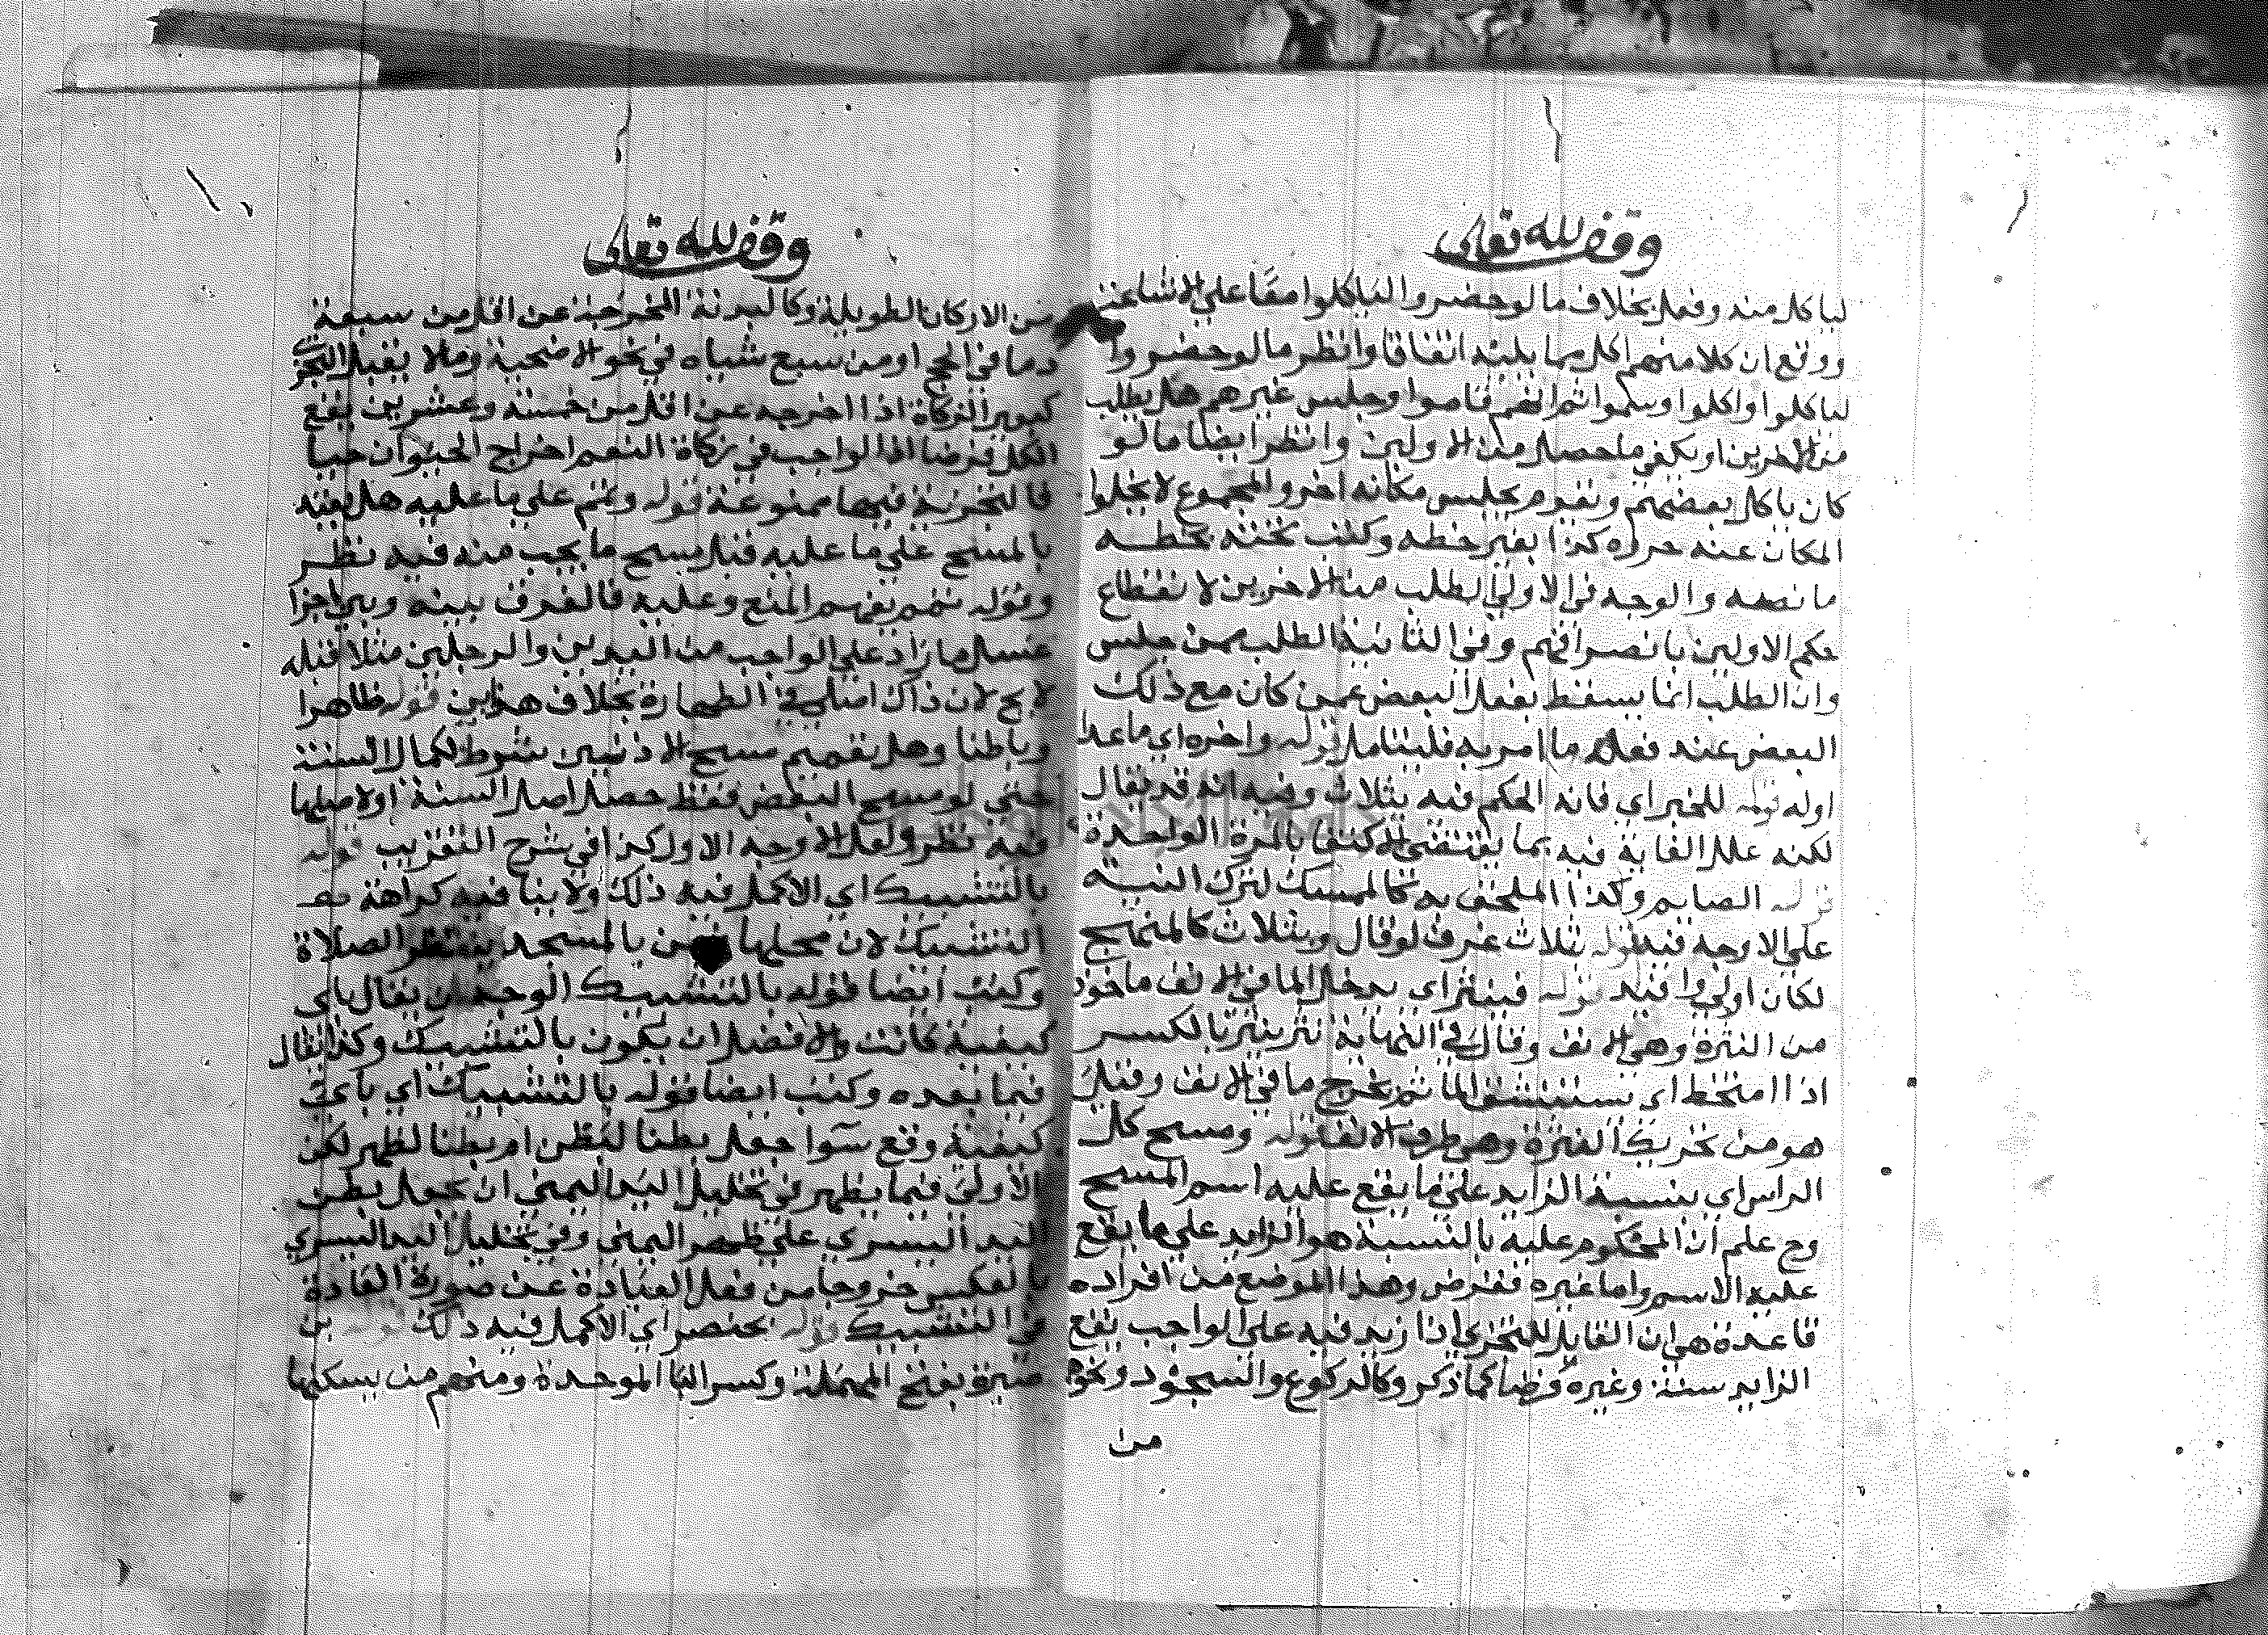 وقف لله تعالى
لياكل منه وفعل بخلاف ما لو حضروا الياكلوا معا على الاشاعة
ووقع ان كلا منهم اكل مما يليه اتفاقا وانظر ما لو حضروا
لياكلوا واكلوا وسموا ثم انهم قاموا وجلس غيرهم هل يطلب
من الاخرين او يكفي ما حصل من الاولين وانظر ايضا ما لو
كان ياكل بعضهم ويقوم يجلس مكانه اخر والمجموع لا يخلوا
المكان عنه حرره كذا بغير خطه وكتب تحته بخطه
ما نصه والوجه في الاولى الطلب من الاخرين لانقطاع
حكم الاولين بانصرافهم وفي الثانية الطلب ممن جلس
وان الطلب انما يسقط بفعل البعض عمن كان مع ذلك
البعض عند فعله ما امر به فليتامل قوله واخره اي ما عدا
اوله قوله للخبر اي فانه الحكم فيه بثلاث وفيه انه قد يقال
لكنه علل الغاية فيه بما يقتضي الاكتفا بالمرة الواحدة
قوله الصايم وكذا الملحق به كالممسك لترك النية
على الاوجه فيه قوله بثلاث غرف لو قال وبثلاث كالمنهج
لكان اولى وافيد قوله فينثر اي يدخل الما في الانف ماخوذ
من النثرة وهي الانف وقال في النهاية نثر ينثر بالكسر
اذا امتخط اي يستنشق الما ثم يخرج ما في الانف وقيل
هو من تحريك النثرة وهي طرف الانف قوله ومسح كل
الراس اي بنسبة الزايد على ما يقع عليه اسم المسح
وح علم ان المحكوم عليه بالنسبة هو الزايد على ما يقع
عليه الاسم واما غيره ففرض وهذا الموضع من افراده
قاعدة هي ان القابل للتجزي اذا زيد فيه على الواجب يقع
الزايد سنة وغيره فرضا كما ذكر وكالركوع والسجود ونحوه
من
وقف لله تعالى
من الاركان الطويلة وكالبدنة المخرجة عن اقل من سبعة
دما في الحج او من سبع شياه في نحو الاضحية وما لا يقبل التجزي
كبعير الزكاة اذا اخرجه عن اقل من خمسة وعشرين يقع
الكل فرضا اذ الواجب في زكاة النعم اخراج الحيوان حيا
فالتجزية فيها ممنوعة قوله وتمم على ما عليه هل يقيد
بالمسح على ما عليه قبل مسح ما يجب منه فيه نظر
وقوله تمم يفهم المنع وعليه فالفرق بينه وبين اجزا
غسل ما زاد على الواجب من اليدين والرجلين مثلا قبله
لا يح لان ذاك اصلي في الطهارة بخلاف هذين قوله ظاهرا
وباطنا وهل تعميم مسح الاذنين شرط لكمال السنة
حتى لو مسح البعض فقط حصل اصل السنة او لاصلها
فيه نظر ولعل الاوجه الاول كذا في شرح التقريب قوله
بالتشبيك اي الاكمل فيه ذلك ولا ينافيه كراهة
التشبيك لان محلها فيمن بالمسجد ينتظر الصلاة
وكتب ايضا قوله بالتشبيك الوجه ان يقال باي
كيفية كانت والافضل ان يكون بالتشبيك وكذا يقال
فيما بعده وكتب ايضا قوله بالتشبيك اي باي
كيفية وقع سوا جعل بطنا لبطن ام بطنا لظهر لكن
الاولى فيما يظهر في تخليل اليد اليمنى ان يجعل بطن
اليد اليسرى على ظهر اليمنى وفي تخليل اليد اليسرى
بالعكس خروجا من فعل العبادة عن صورة العادة
في التشبيك قوله بخنصر اي الاكمل فيه ذلك قوله بن
صبرة بفتح المهملة وكسر البا الموحدة ومنهم من يسكنها